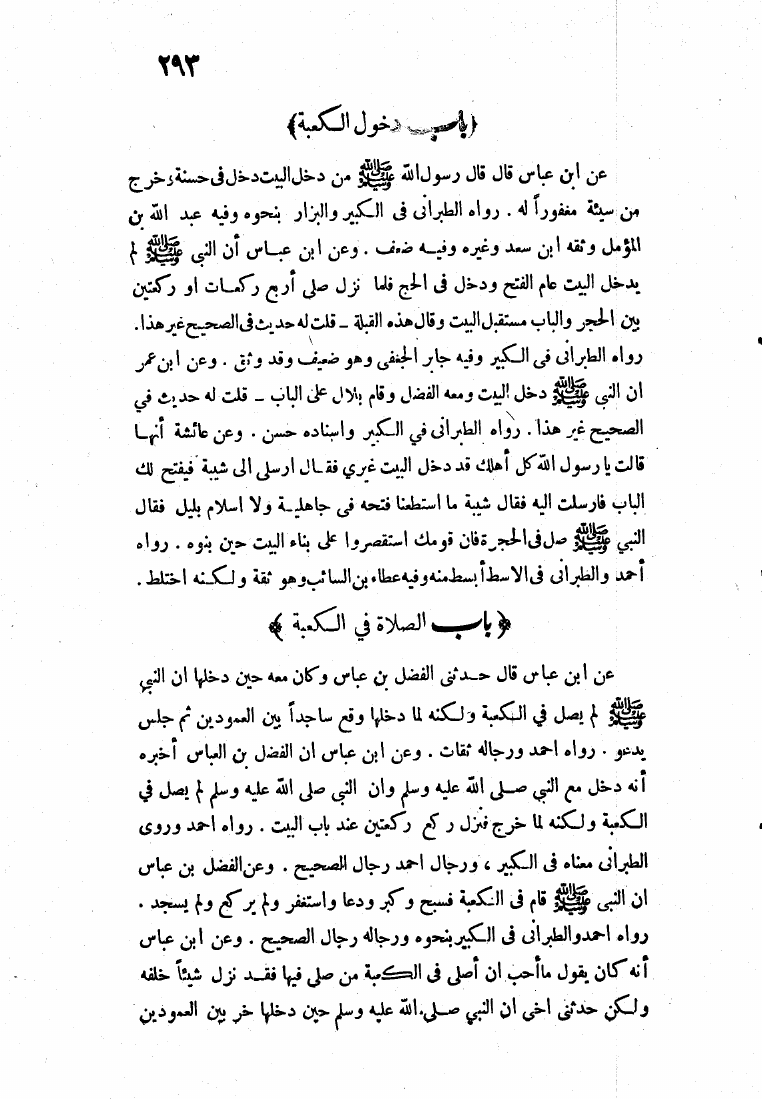 ٢٩٣
﴿باب دخول الكعبة﴾
عن ابن عباس قال قال رسول الله ﷺ من دخل البيت دخل فى حسنة وخرج
من سيئة مغفوراً له . رواه الطبرانى فى الكبير والبزار بنحوه وفيه عبد الله بن
المؤمل وثقه ابن سعد وغيره وفيه ضعف . وعن ابن عباس أن النبى ﷺ لم
يدخل البيت عام الفتح ودخل فى الحج فلما نزل صلى أربع ركعات او ركعتين
بين الحجر والباب مستقبل البيت وقال هذه القبلة ـ قلت له حديث فى الصحيح غير هذا.
رواه الطبرانى فى الكبير وفيه جابر الجعفى وهو ضعيف وقد وثق . وعن ابن عمر
ان النبى ﷺ دخل البيت ومعه الفضل وقام بلال على الباب ـ قلت له حديث في
الصحيح غير هذا . رواه الطبرانى في الكبير واسناده حسن . وعن عائشة أنها
قالت يا رسول الله كل أهلك قد دخل البيت غيري فقال ارسلى الى شيبة فيفتح لك
الباب فارسلت اليه فقال شيبة ما استطعنا فتحه فى جاهلية ولا اسلام بليل فقال
النبي ﷺ صل فى الحجرة فان قومك استقصروا على بناء البيت حين بنوه . رواه
أحمد والطبرانى فى الاسط أبسط منه وفيه عطاء بن السائب وهو ثقة ولكنه اختلط .
﴿باب الصلاة في الكعبة﴾
عن ابن عباس قال حدثنى الفضل بن عباس وكان معه حين دخلها ان النبي
ﷺ لم يصل في الكعبة ولكنه لما دخلها وقع ساجداً بين العمودين ثم جلس
يدعو . رواه احمد ورجاله ثقات . وعن ابن عباس ان الفضل بن العباس أخبره
أنه دخل مع النبي صلى الله عليه وسلم وان النبى صلى الله عليه وسلم لم يصل في
الكعبة ولكنه لما خرج فنزل ركع ركعتين عند باب البيت . رواه احمد وروى
الطبرانى معناه فى الكبير ، ورجال احمد رجال الصحيح . وعن الفضل بن عباس
ان النبى ﷺ قام فى الكعبة فسبح وكبر ودعا واستغفر ولم يركع ولم يسجد .
رواه احمد والطبرانى فى الكبير بنحوه ورجاله رجال الصحيح . وعن ابن عباس
أنه كان يقول ما أحب ان أصلى فى الكعبة من صلى فيها فقد نزل شيئاً خلفه
ولكن حدثنى اخى ان النبي صلى الله عليه وسلم حين دخلها خر بين العمودين